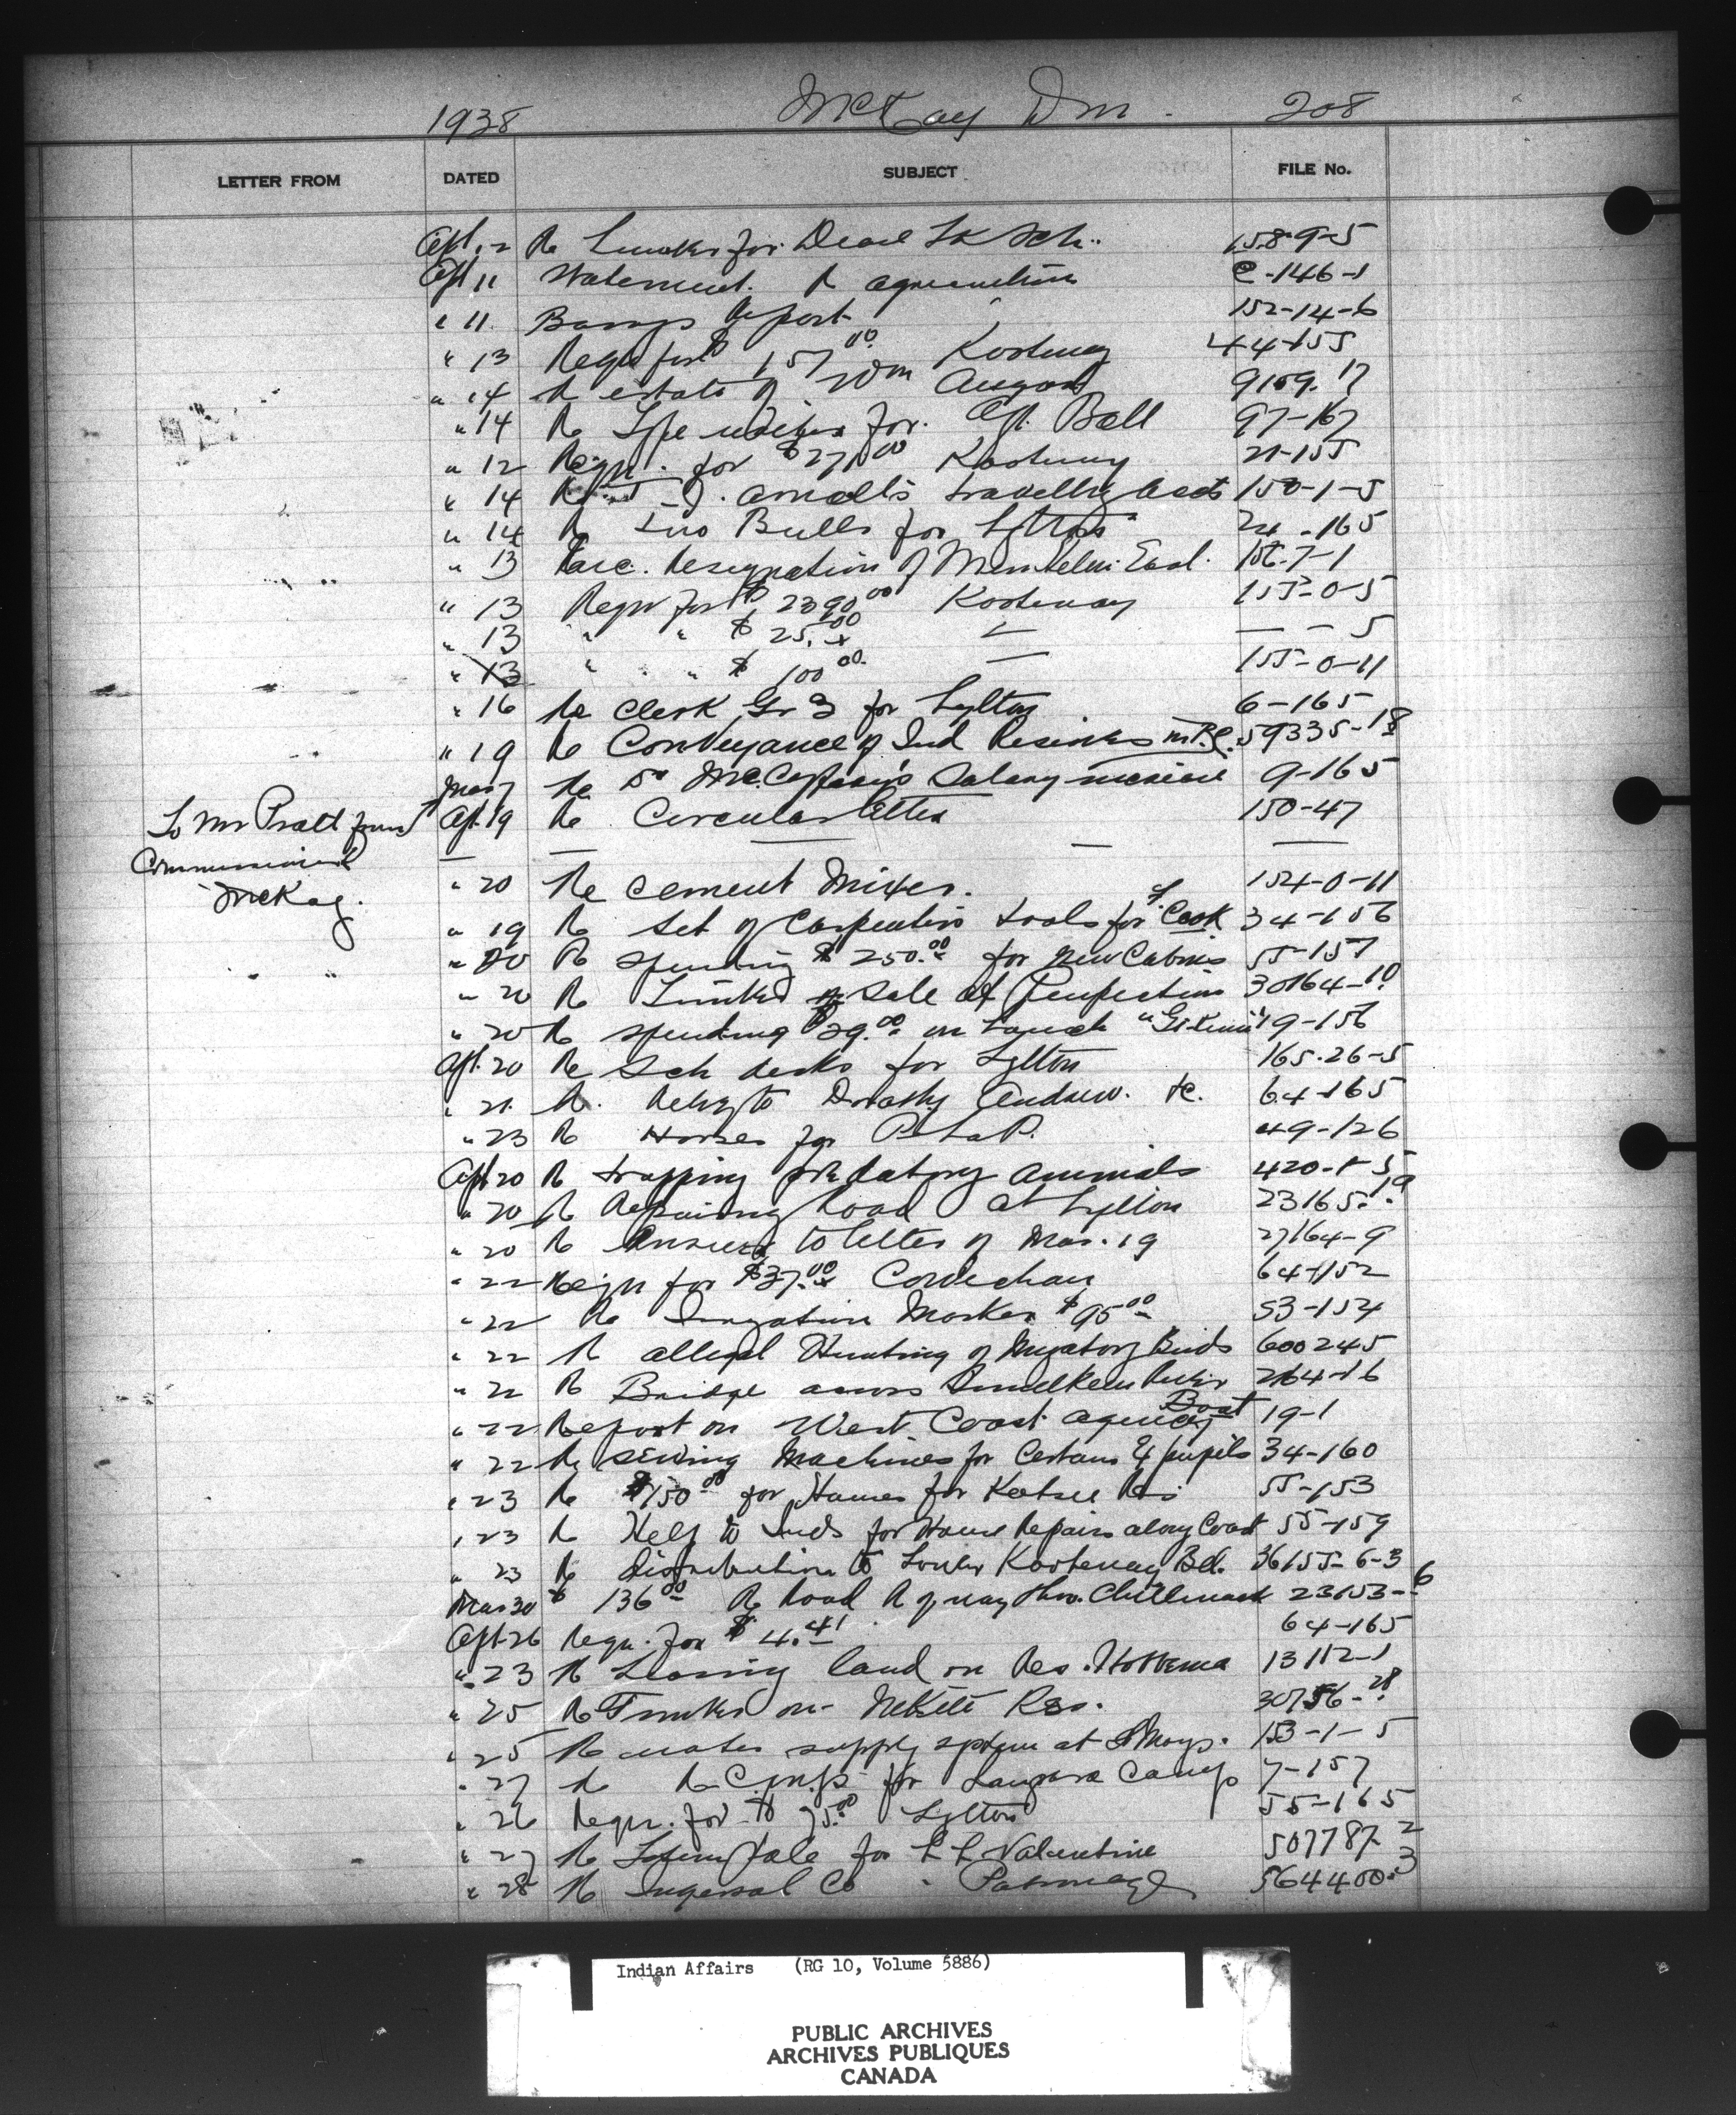 1938 McKay D M. 208
LETTER FROM DATED SUBJECT FILE No.
Apl. 12 Re for Sch. 158-9-5
Apl 11 Statement. Re 152-14-6 C-146-1
" 11. Report 152-14-6
" 13 Requ for $157.00 Kootenay 44-155
" 14 Re estate of Wm 9159-17
" 14 Re Type writer for Ball 97-167
" 12 Requ. for $271.00 Kootenay 21-155
" 14 Re Arnall's travelling accts 150-1-5
" 14 Re Two Bulls for Lytton 24-165
" 13 Resignation of 156-7-1
" 13 Requ for $2390.00 Kootenay 155-0-5
" 13 " " $25.00 — — — 5
" 13 " " $100.00 — 155-0-11
" 16 Re Clerk Gr 3 for Lytton 6-165
" 19 Re Conveyance of Ind Reserves in B.C. 59335-18
Mar 7 Re Dr Salary increase 9-165
To Mr Pratt from Apl. 19 Re Circular letter 150-47
Commissioner — — — — —
McKay. " 20 Re Cement Mixer. 154-0-11
" 19 Re Set of Carpenters tools for F. Cook 34-156
" 20 Re spending $250.00 for New Cabins 55-157
" 20 Re Timber Sale at Penticton 30164-10
" 20 Re spending $29.00 on Launch 19-156
Apl. 20 Re Sch desks for Lytton 165-26-5
" 21. Re. Relief to Dorothy Andrew. &c. 64-165
" 23 Re Horses for 49-126
Apl 20 Re trapping predatory animals 420-1-5
" 20 Re Repairing Road at Lytton 23165-19
" 20 Re Answer to letter of Mar. 19 27164-9
" 22 Requ for $37.00 Cowichan 64-152
" 22 Re Irrigation Works $95.00 53-154
" 22 Re alleged Hunting of Migatory Birds 600245
" 22 Re Bridge across Similkeen River 2164-16
" 22 Report on West Coast agency Boat 19-1
" 22 Re Sewing Machines for Certain Ex pupils 34-160
" 23 Re $150.00 for Houses for Katzie Res 55-153
" 23 Re Help to Inds for House Repairs along Coast 55-159
" 23 Re Distribution to Lower Kootenay Bd. 36155-6-3
Mar 30 $136.00 Re Road R of way thro. Chilliwack 23153-6
Apl. 26 Requ. for $4.41 64-165
" 23 Re Leasing land on Res. 13112-1
" 25 Re Timber on Res. 30756-28
" 25 Re water supply system at St Marys. 153-1-5
" 27 Re for Langara Camp 7-157
" 26 Requ. for $75.00 Lytton 55-165
" 27 Re Totem Pole for L L Valentine 507787-2
" 28 Re Ingersol Co Patronage 564400-3
Indian Affairs (RG 10, Volume 5886)
PUBLIC ARCHIVES
ARCHIVES PUBLIQUES
CANADA